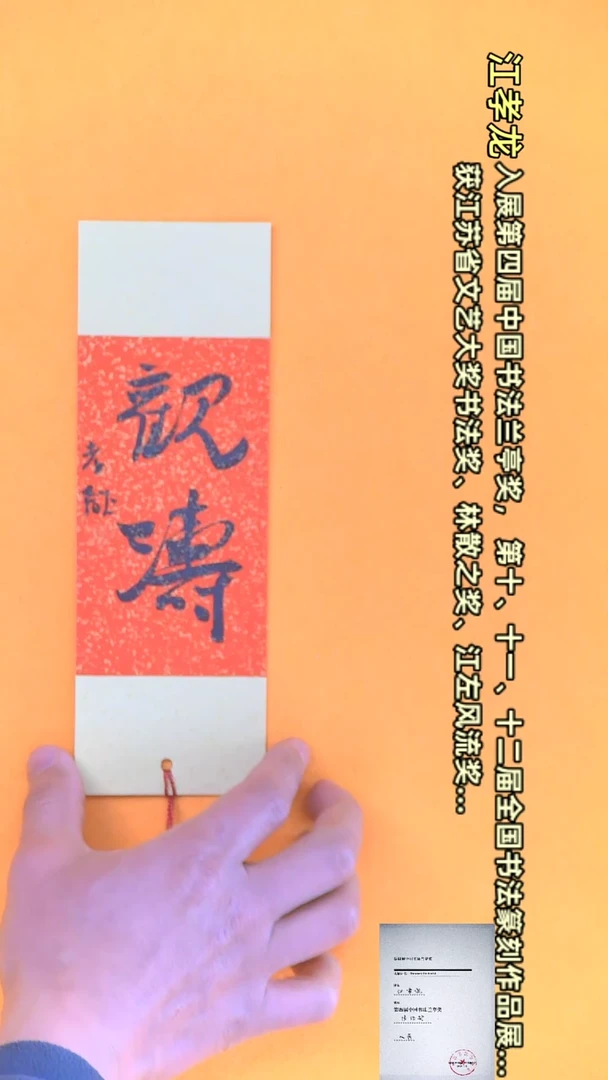 江孝龙
入展第四届中国书法兰亭奖，第十、十一、十二届全国书法篆刻作品展...
获江苏省文艺大奖书法奖、林散之奖、江左风流奖...
觀濤
孝龍